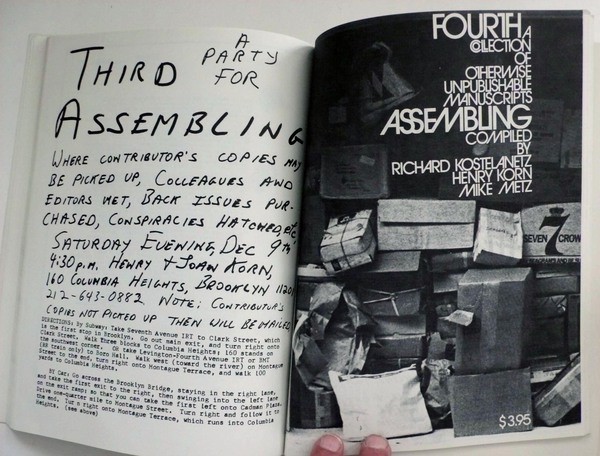 A
PARTY
FOR
THIRD
ASSEMBLING
WHERE CONTRIBUTOR'S COPIES MAY
BE PICKED UP, COLLEAGUES AND
EDITORS MET, BACK ISSUES PUR-
CHASED, CONSPIRACIES HATCHED, ETC.
SATURDAY EVENING, DEC 9TH
4:30 p.m. HENRY + JOAN KORN,
160 COLUMBIA HEIGHTS, BROOKLYN 11201
212-643-0882 NOTE: CONTRIBUTOR'S
COPIES NOT PICKED UP THEN WILL BE MAILED
DIRECTIONS: By Subway: Take Seventh Avenue IRT to Clark Street, which
is the first stop in Brooklyn. Go out main exit, and turn right onto
Clark Street. Walk Three blocks to Columbia Heights; 160 stands on
the southwest corner. OR take Lexington-Fourth Avenue IRT or BMT
(RR train only) to Boro Hall. Walk west (toward the river) on Montague
Street to the end, turn right onto Montague Terrace, and walk 100
yards to Columbia Heights.
BY Car: Go across the Brooklyn Bridge, staying in the right lane,
and take the first exit to the right, then swinging into the left lane
on the exit ramp; so that you can take the first left onto Cadman Plaza.
Drive one-quarter mile to Montague Street. Turn right and follow it to
the end. Turn right onto Montague Terrace, which runs into Columbia
Heights. (see above)
FOURTH A
COLLECTION
OF
OTHERWISE
UNPUBLISHABLE
MANUSCRIPTS
ASSEMBLING
COMPILED
BY
RICHARD KOSTELANETZ
HENRY KORN
MIKE METZ
7
SEVEN CROW
$3.95